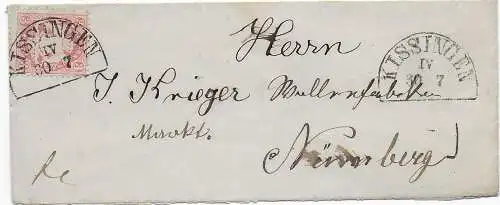 KISSINGEN
IV
30 7
Herrn
KISSINGEN
IV
30 7
J. Krieger Wollenfabriken
Markt.
Nürnberg